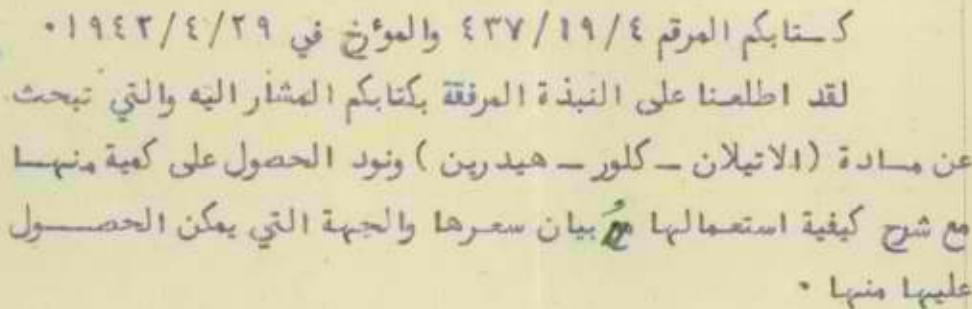 كـتابكم المرقم ٤٣٧/١٩/٤ والموءرخ في ١٩٤٢/٤/٢٩٠
لقد اطلعنا على النبذة المرفقة بكتابكم المشار اليه والتي تبحث
عن مـادة (الاتيلان ـ كلور ـ هيدرين) ونود الحصول على كمية منهـا
مع شرح كيفية استعمالها مع بيان سعرها والجهة التي يمكن الحصــول
عليها منها ٠